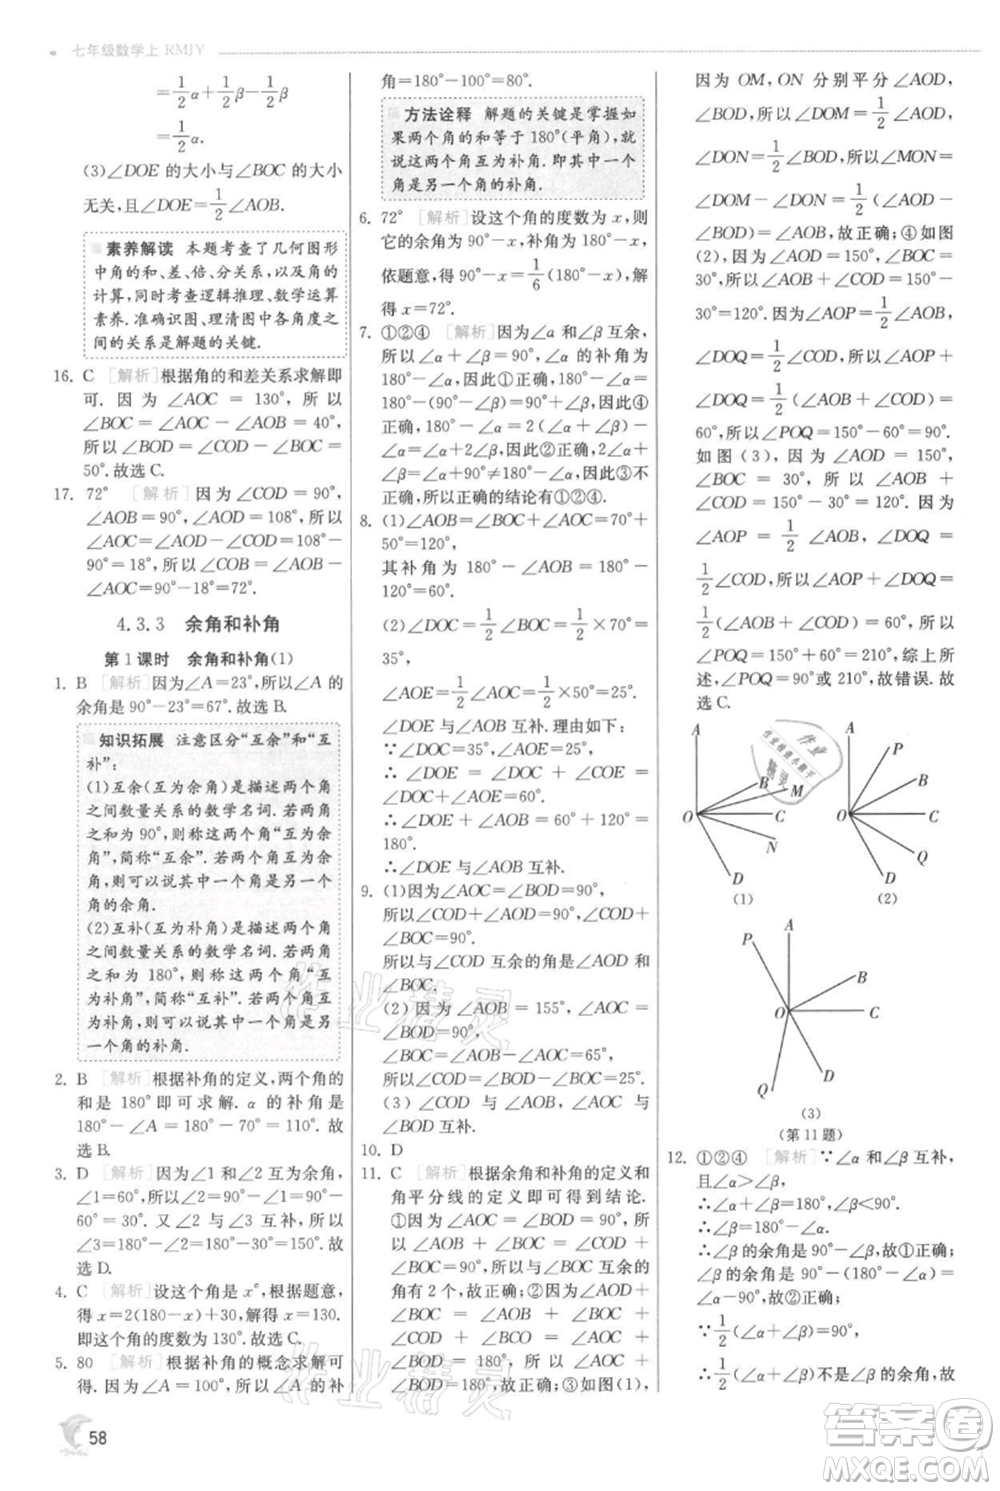 七年级数学上 RMJY
=1/2α+1/2β-1/2β
=1/2α.
(3)∠DOE 的大小与∠BOC 的大小
无关,且∠DOE=1/2∠AOB.
素养解读 本题考查了几何图形
中角的和、差、倍、分关系,以及角的
计算,同时考查逻辑推理、数学运算
素养.准确识图、理清图中各角度之
间的关系是解题的关键.
16. C [解析]根据角的和差关系求解即
可.因为∠AOC=130°,所以
∠BOC=∠AOC-∠AOB=40°,
所以∠BOD=∠COD-∠BOC=
50°.故选 C.
17. 72° [解析]因为∠COD=90°,
∠AOB=90°,∠AOD=108°,所以
∠AOC=∠AOD-∠COD=108°-
90°=18°,所以∠COB=∠AOB-
∠AOC=90°-18°=72°.
4.3.3 余角和补角
第 1 课时 余角和补角(1)
1. B [解析]因为∠A=23°,所以∠A的
余角是90°-23°=67°.故选 B.
知识拓展 注意区分“互余”和“互
补”:
(1)互余(互为余角)是描述两个角
之间数量关系的数学名词.若两个角
之和为 90°,则称这两个角“互为余
角”,简称“互余”.若两个角互为余
角,则可以说其中一个角是另一个角
的余角.
(2)互补(互为补角)是描述两个角
之间数量关系的数学名词.若两个角
之和为 180°,则称这两个角“互为补
角”,简称“互补”.若两个角互为补
角,则可以说其中一个角是另一个角
的补角.
2. B [解析]根据补角的定义,两个角的
和是 180°即可求解.α 的补角是
180°-∠A=180°-70°=110°.故
选 B.
3. D [解析]因为∠1 和∠2 互为余角,
∠1=60°,所以∠2=90°-∠1=90°-
60°=30°.又因为∠2 与∠3 互补,所以
∠3=180°-∠2=180°-30°=150°.故
选 D.
4. C [解析]设这个角是 x°,根据题意,
得 x=2(180-x)+30,解得 x=130.
即这个角的度数为 130°.故选 C.
5. 80 [解析]根据补角的概念求解可
得.因为∠A=100°,所以∠A 的补
角=180°-100°=80°.
方法诠释 解题的关键是掌握如
果两个角的和等于 180°(平角),就
说这两个角互为补角.即其中一个
角是另一个角的补角.
6. 72° [解析]设这个角的度数为 x,则
它的余角为 90°-x,补角为 180°-x,
依题意,得 90°-x=1/6(180°-x),解
得 x=72°.
7. ①②④ [解析]因为∠α 和∠β 互余,
所以∠α+∠β=90°,∠α 的补角为
180°-∠α,因此①正确,180°-∠α=
180°-(90°-∠β)=90°+∠β,因此④
正确,180°-∠α=2(∠α+∠β)-
∠α=∠α+2∠β,因此②正确,
180°-∠α=90°+∠β≠90°,因此③不
正确,正确的结论有①②④.
8. (1)∠AOB=∠BOC+∠AOC=70°
+50°=120°,
其补角为 180°-∠AOB=180°-
120°=60°.
(2)∠DOC=1/2∠BOC=1/2×70°=
35°,
∠AOE=1/2∠AOC=1/2×50°=25°.
∠DOE 与∠AOB 互补.理由如下:
∵∠DOC=35°,∠COE=25°,
∴∠DOE=∠DOC+∠COE=
60°.
∴∠DOE+∠AOB=60°+120°=
180°.
∴∠DOE 与∠AOB 互补.
9. (1)因为∠AOC=∠BOD=90°,
所以∠COD+∠AOD=90°,∠COD+
∠BOC=90°.
所以与∠COD 互余的角是∠AOD
和∠BOC.
(2)因为∠AOB=155°,∠AOC=
∠BOD=90°,
∠BOC=∠AOB-∠AOC=65°,
所以∠COD=∠BOD-∠BOC=25°.
(3)∠COD 与∠AOB、∠AOC 与
∠BOD 互补.
10. D
11. C [解析]根据余角和补角的定义和
角平分线的定义即可得到结论.
①因为∠AOC=∠BOD=90°,所
以∠COD=∠AOB=90°-
∠BOC,所以图中与∠BOC 互余的
角有 2 个,故①正确;②因为∠AOD+
∠BOC=∠AOB+∠BOC+
∠COD+∠BCO=∠AOC+
∠BOD=180°,故②正确;③如图(1),
因为 OM,ON 分别平分∠AOD,
∠BOD,所以∠DOM=1/2∠AOD,
∠DON=1/2∠BOD,所以∠MON=
∠DOM-∠DON=1/2(∠AOD-
∠BOD)=1/2∠AOB,故③正确;④如图
(2),因为∠AOD=150°,∠BOC=
30°,所以∠AOB+∠COD=150°-
30°=120°,因为∠AOP=1/2∠AOB,
∠DOQ=1/2∠COD,所以∠AOP+
∠DOQ=1/2(∠AOB+∠COD)=
60°,所以∠POQ=150°-60°=90°.
如图(3),因为∠AOD=150°,
∠BOC=30°,所以∠AOC+
∠BOD=150°+30°=180°.因为
∠AOP=1/2∠AOC,∠DOQ=
1/2∠BOD,所以∠AOP+
∠DOQ=1/2(∠AOC+∠BOD)=
90°,所以∠POQ=∠AOP+
∠DOQ+∠AOD=360°-90°-
150°=120°,综上所
述,∠POQ=90°或 210°,故错误.故
选 C.
A B M O C N D
(1)
A P B O C Q D
(2)
P A B O C Q D
(3)
(第 11 题)
12. ①②④ [解析]∵∠α 和∠β 互补,
且∠α>∠β,
∴∠α+∠β=180°,∠β<90°.
∴∠α+∠β=180°,
∴∠β=180°-∠α.
∴∠β 的余角是 90°-∠β,故①正确;
∠β 的余角是 90°-∠β=90°-(180°-
∠α)=∠α-90°,故②正确;
∵1/2(∠α+∠β)=90°,
∴1/2(∠α-∠β)不是∠β 的余角,故
58
作业精灵
答案圈
MXQE.COM